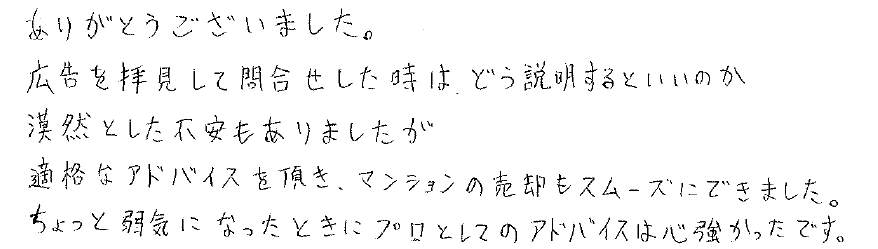 ありがとうございました。
広告を拝見して問合せした時は、どう説明するといいのか
漠然とした不安もありましたが
適格なアドバイスを頂き、マンションの売却もスムーズにできました。
ちょっと弱気になったときにプロとしてのアドバイスは心強かったです。